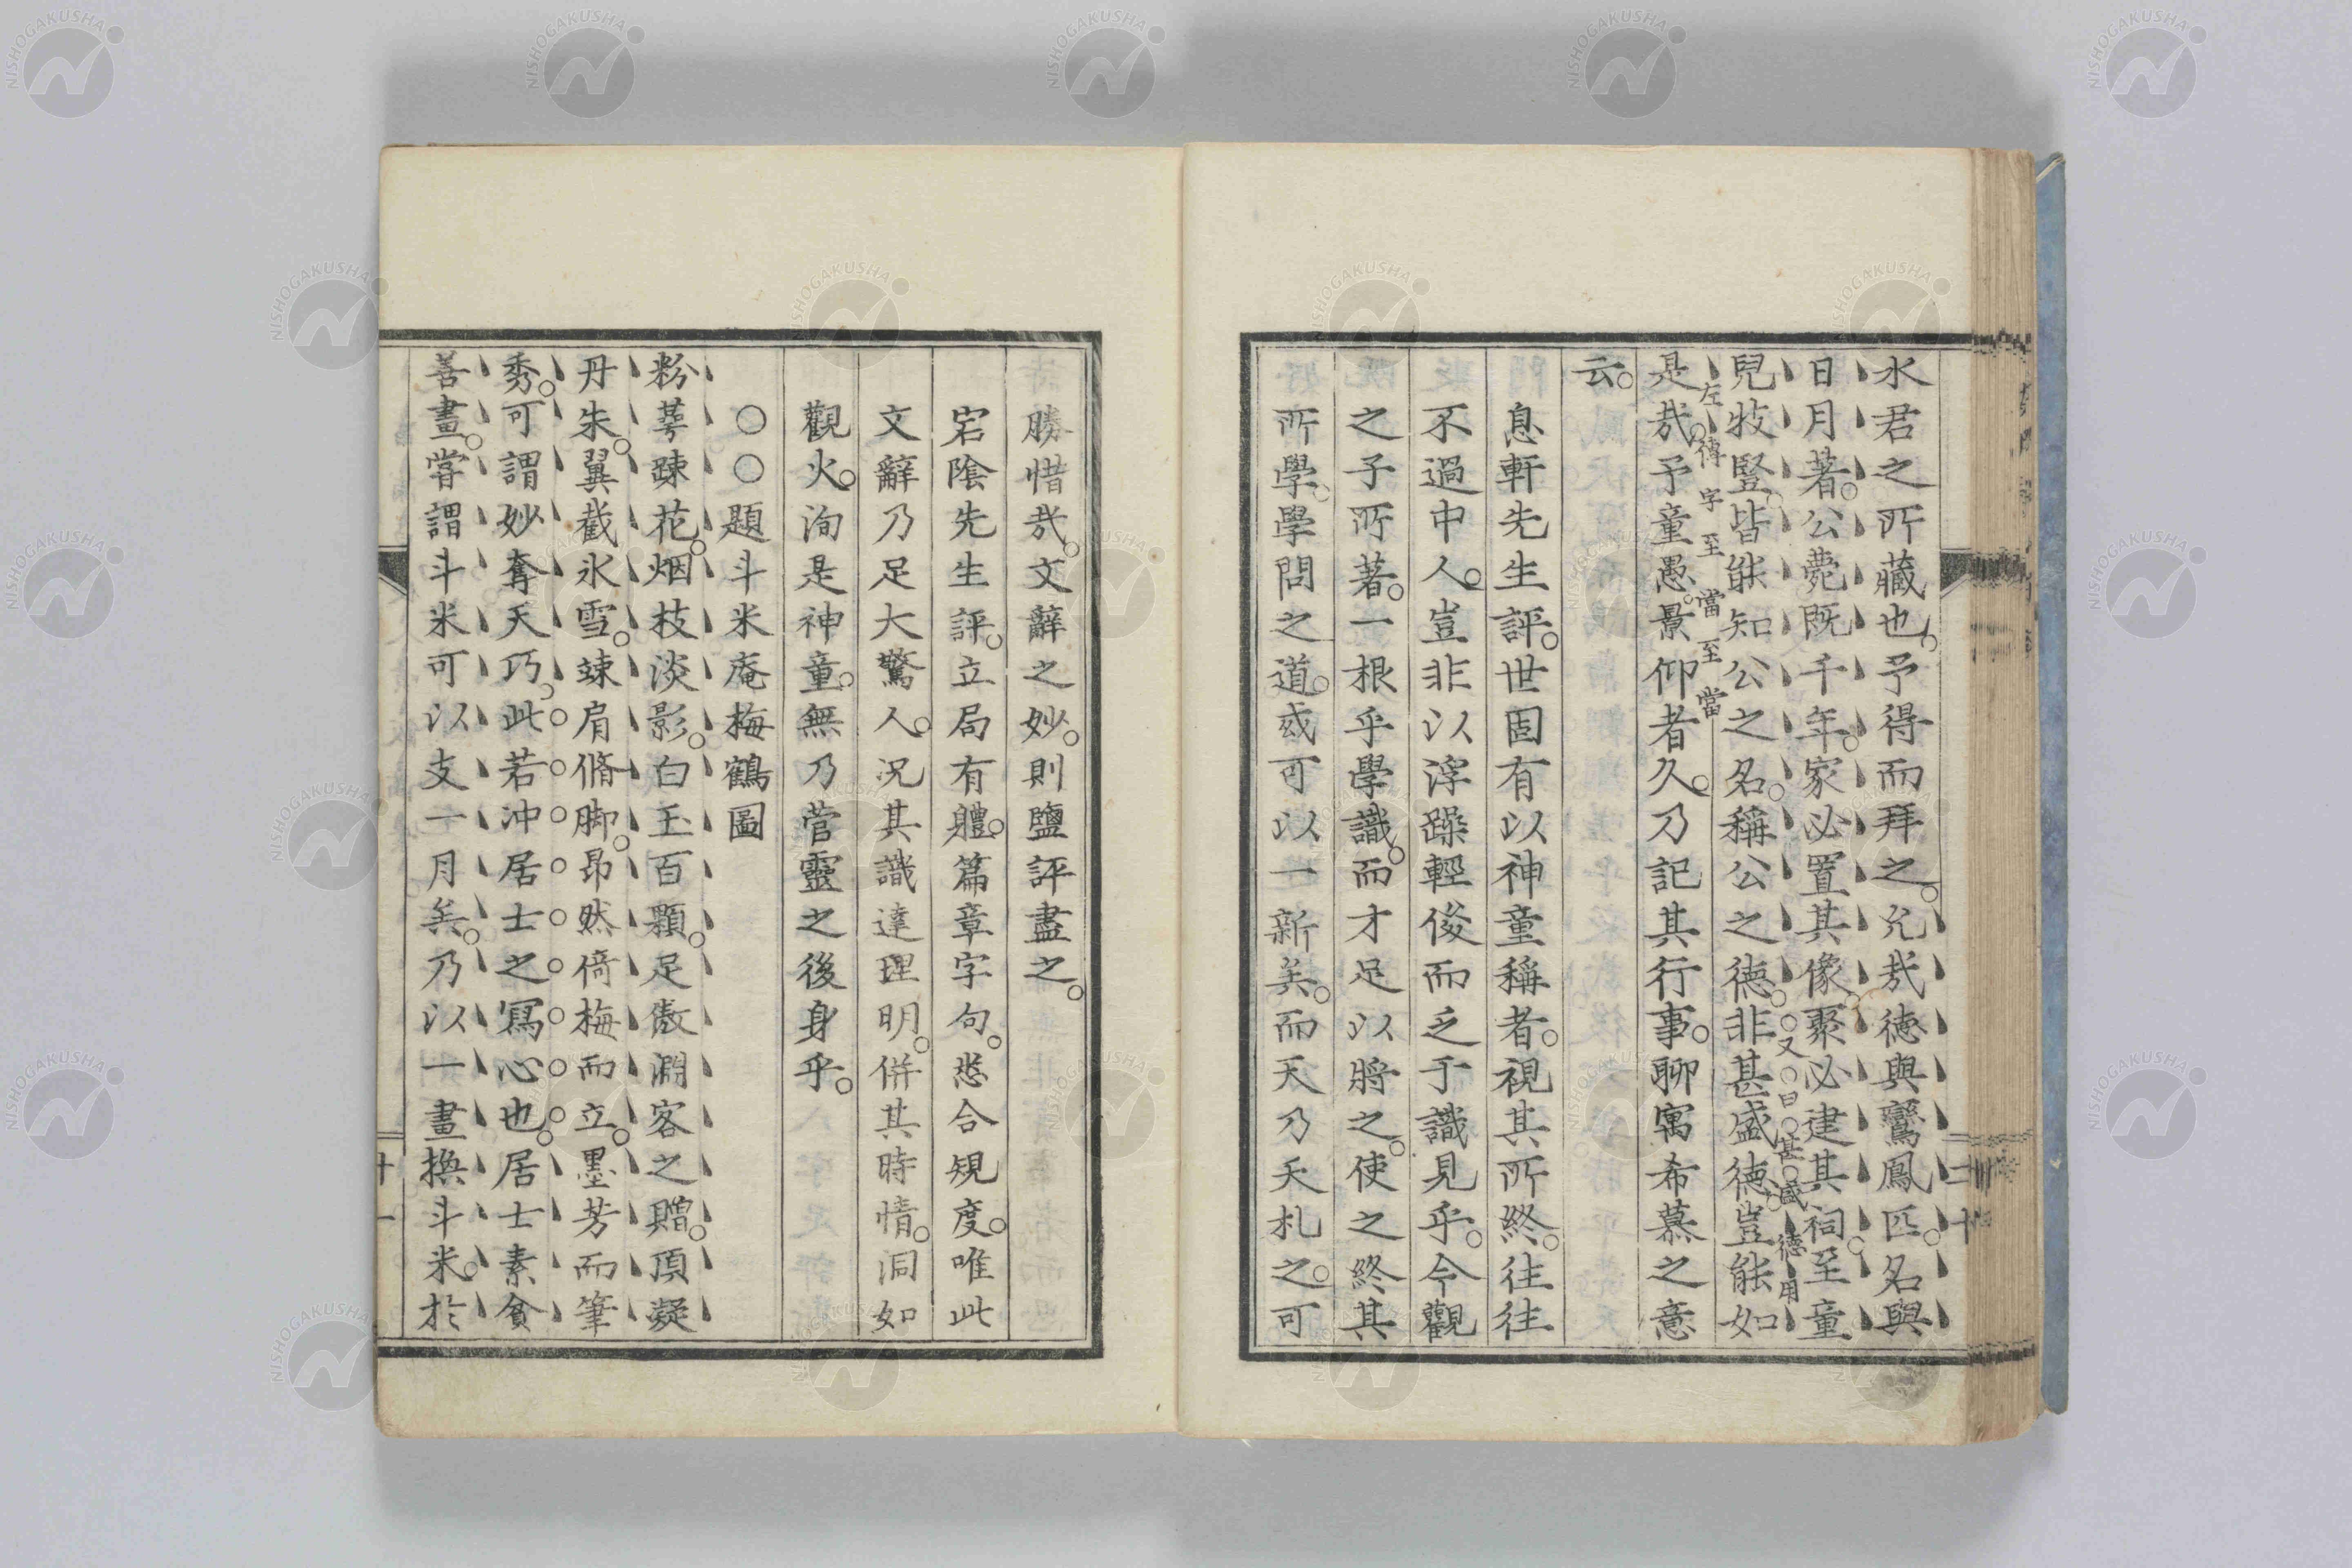 水君之所藏也。予得而拜之。允哉德與鸞鳳匹。名與
日月著。公薨既千年。家必置其像。聚必建其祠。至童
兒牧豎。皆能知公之名。稱公之德。非甚盛德。豈能如
又曰甚盛德用
左傳字至當至當
是哉。予童愚。景仰者久。乃記其行事。聊寓希慕之意
云。
息軒先生評。世固有以神童稱者。視其所終。往往
不過中人。豈非以浮躁輕俊而乏于識見乎。今觀
之子所著。一根乎學識。而才足以將之。使之終其
所學。學問之道。或可以一新矣。而天乃夭札之。可
勝惜哉。文辭之妙。則鹽評盡之。
宕陰先生評。立局有體。篇章字句。悉合規度。唯此
文辭乃足大驚人。況其識達理明。併其時情。洞如
觀火。洵是神童。無乃菅靈之後身乎。
○○題斗米庵梅鶴圖
粉萼疎花。烟枝淡影。白玉百顆。足傲淵客之贈。頂凝
丹朱。翼截氷雪。竦肩脩脚。昂然倚梅而立。墨芳而筆
秀。可謂妙奪天巧。此若冲居士之寫心也。居士素貧
善畫。嘗謂斗米可以支一月矣。乃以一畫換斗米。於
十一
NISHOGAKUSHA